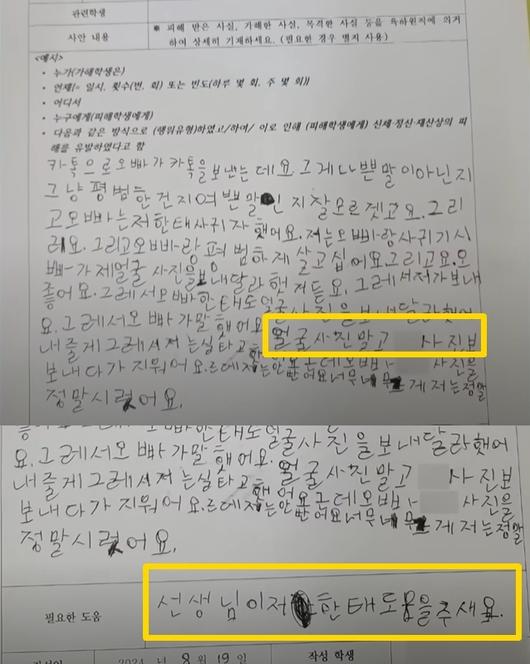 관련학생
사안 내용
※ 피해 받은 사실, 가해한 사실, 목격한 사실 등을 육하원칙에 의거
하여 상세히 기재하세요. (필요한 경우 별지 사용)
<예시>
• 누가(가해학생은)
• 언제(= 일시, 횟수(번, 회) 또는 빈도(하루 몇 회, 주 몇 회))
• 어디서
• 누구에게(피해학생에게)
• 다음과 같은 방식으로 (행위유형)하였고/하여/ 이로 인해 (피해학생에게) 신체·정신·재산상의 피
해를 유발하였다고 함
카톡으로오빠가 카톡을보낸는데요. 그게나쁜말이아닌지
그냥 평범한 건지 인지 잘모르겟고요. 그리
고오빠는저한태사귀자 했어요. 저는오빠랑사귀기시
러요. 그리고오빠랑 평범하게 살고십어요. 그리고요. 오
빠가제얼굴 사진을보내달라햇 그레서저가보내
줗어요. 그레서오빠한태도얼굴사진을보내달라했어
요. 그레서오빠가말했어요. 얼굴사진말고 사진보
내줄게 그레서저는실타고했
보내다가 지워어요. 사진을
게저는정말
정말시렀어요.
요. 그레서오빠한태도얼굴사진을보내달라했어
요. 그레서오빠가말했어요. 얼굴사진말고 사진보
내줄게 그레서저는실타고했
보내다가 지워어요. 사진을
게저는정말
정말시렀어요.
필요한 도움
선생님이저한태도움을주새요.
2024 년 8 월 19 일
작성 학생